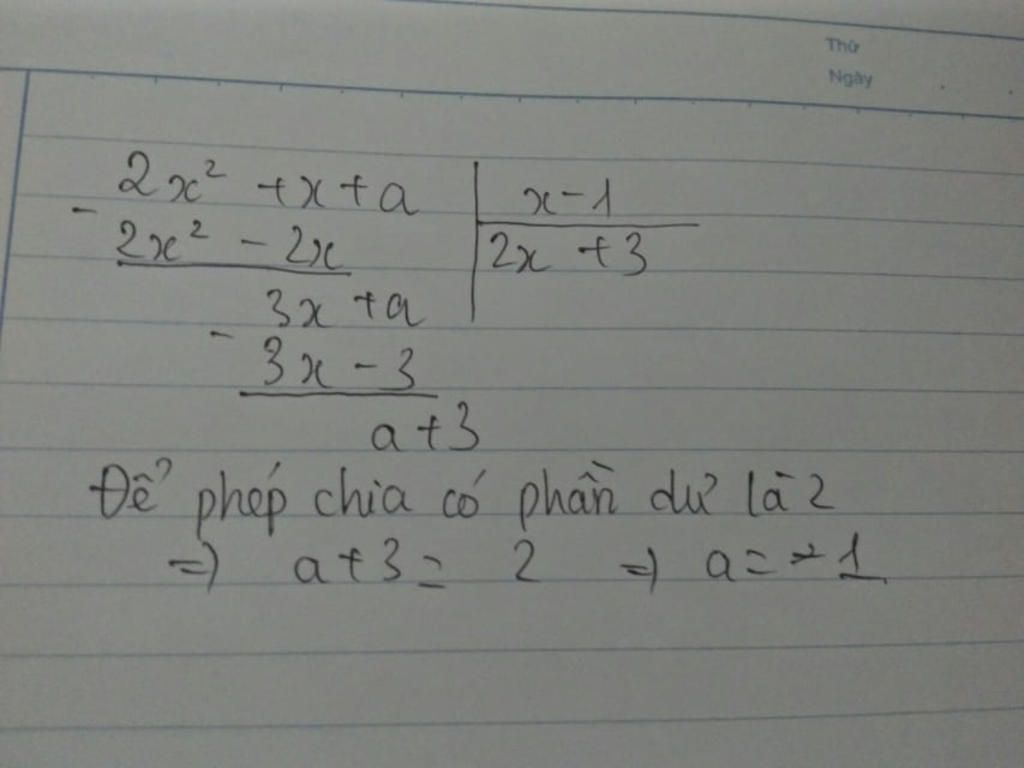 Thứ
Ngày
2x² + x + a | x - 1
- 2x² - 2x | 2x + 3
3x + a
- 3x - 3
a + 3
Để phép chia có phần dư là 2
=> a + 3 = 2 => a = -1